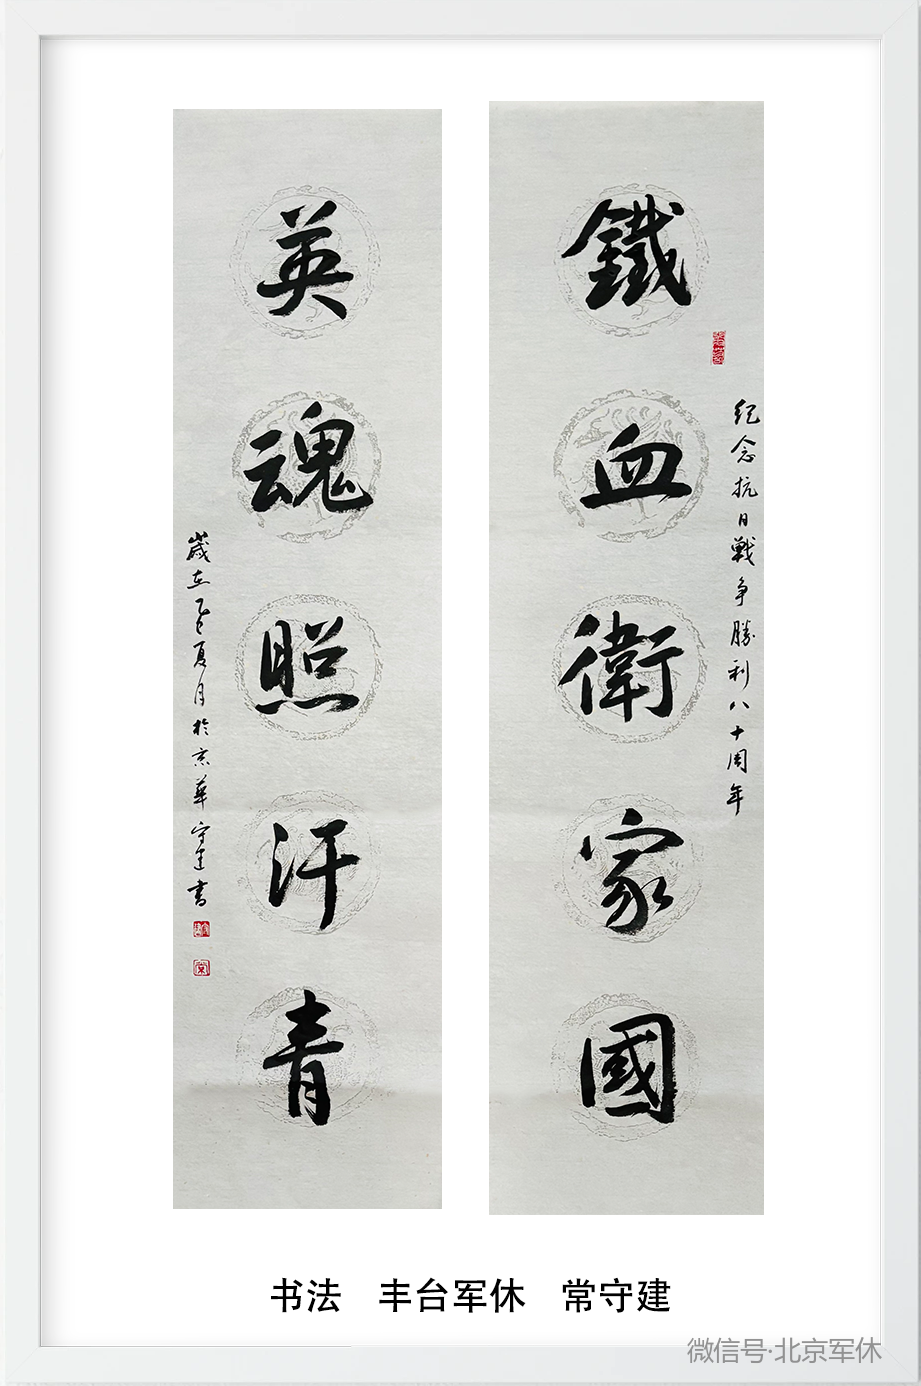 鐵血衛家國
紀念抗日戰爭勝利八十周年
英魂照汗青
歲在乙巳夏月於京華守建書
书法 丰台军休 常守建
微信号·北京军休